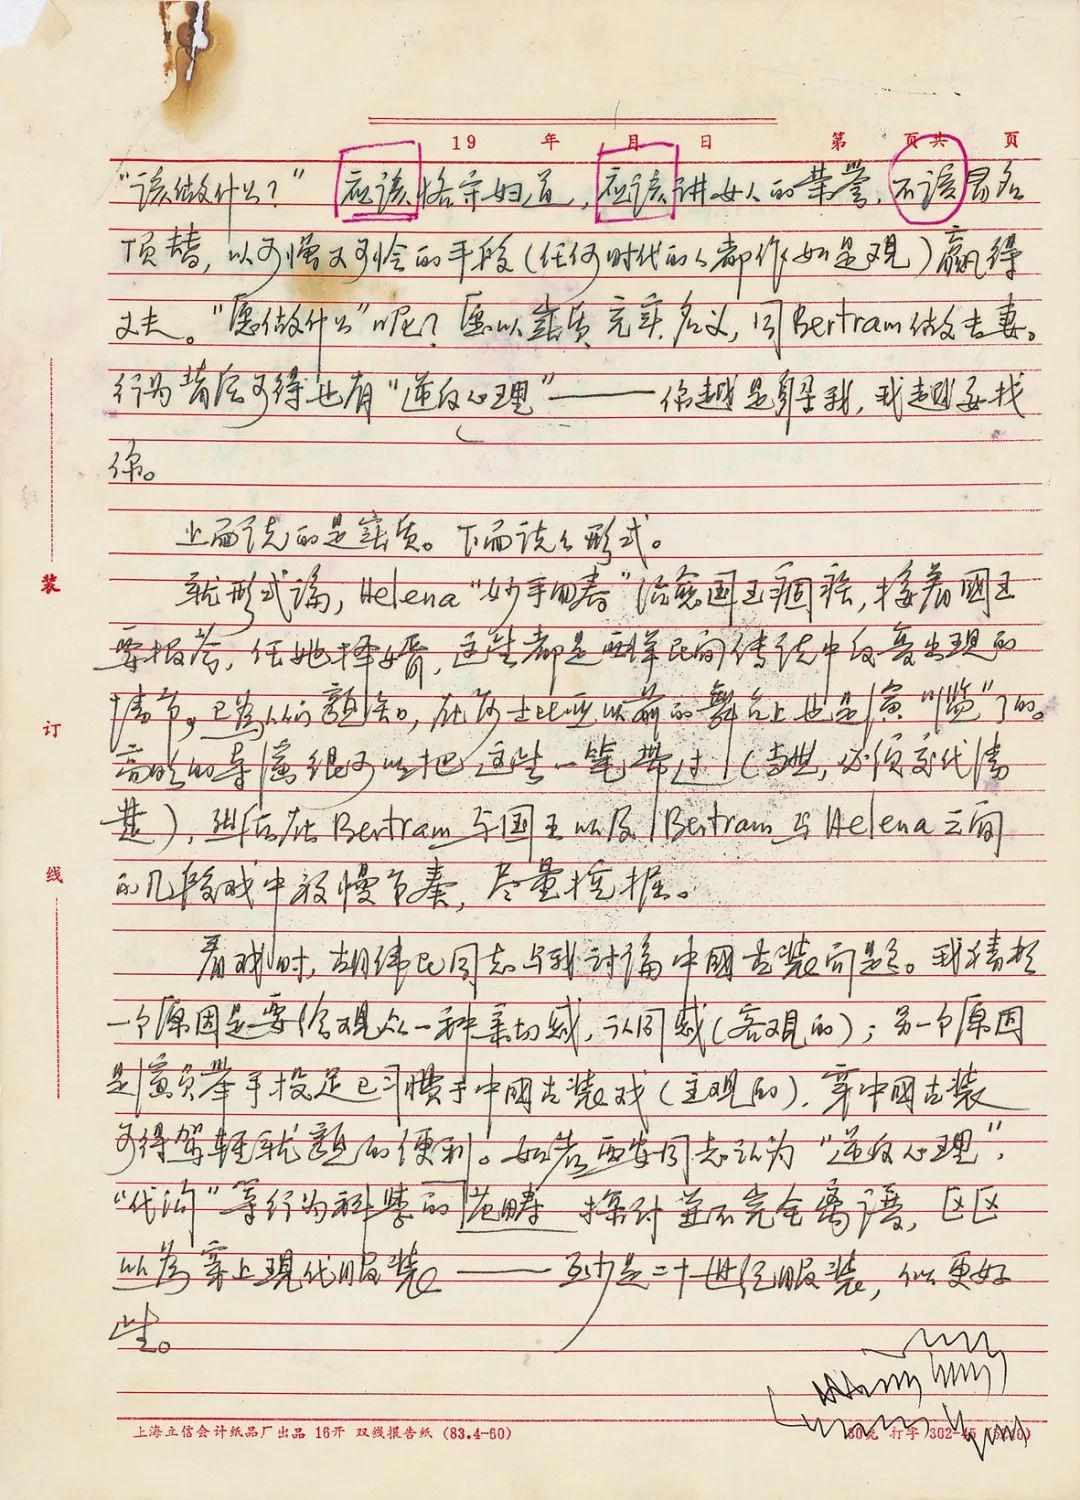 19 年 月 日 第 页共 页
“该做什么？” 应该恪守妇道，应该讲女人的荣誉，不该冒名
顶替，以可憎又可怜的手段（任何时代的人都作如是观）赢得
丈夫。“愿做什么”呢？愿以实质充实名义，同Bertram做夫妻。
行为背后可得也有“逆反心理”———你越是躲我，我越要找
你。
上面说的是实质。下面说说形式。
就形式论，Helena“妙手回春”治愈国王痼疾，接着國王
要报答，任她择婿，这些都是西洋民间传说中反复出现的
情节，已为人们熟知，在莎士比亚以前的舞台上也是演“滥”了的。
高明的导演很可以把这些一笔带过（当然，必须交代清
楚），然后在Bertram与国王以及Bertram与Helena之间
的几段戏中放慢节奏，尽量挖掘。
看戏时，胡伟民同志与我讨论中國古装问题。我猜想
一个原因是要给观众一种亲切感，认同感（客观的）；另一个原因
是演员举手投足已习惯于中國古装戏（主观的），穿中國古装
可得驾轻就熟的便利。如若西安同志认为“逆反心理”，
“代沟”等行为科学的范畴探讨并不完全离谱，区区
以为穿上现代服装———至少是二十世纪服装，似更好
些。
装
订
线
上海立信会计纸品厂出品 16开 双线报告纸 (83.4-60)